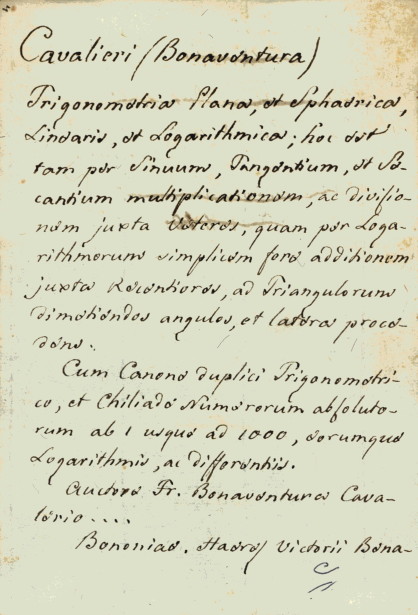 Cavalieri (Bonaventura)
Trigonometria Plana, et Sphaerica,
Linearis, et Logarithmica; hoc est
tam per Sinuum, Tangentium, et Se-
cantium multiplicationem, ac divisio-
nem juxta Veteres, quam per Loga-
rithmorum simplicem fere additionem
juxta Recentiores, ad Triangulorum
dimetiendos angulos, et latera proce-
dens.
Cum Canone duplici Trigonometri-
co, et Chiliade Numerorum absoluto-
rum ab 1 usque ad 1000, eorumque
Logarithmis, ac differentiis.
Auctore Fr. Bonaventura Cava-
lerio....
Bononiae. Haered Victorii Bena-